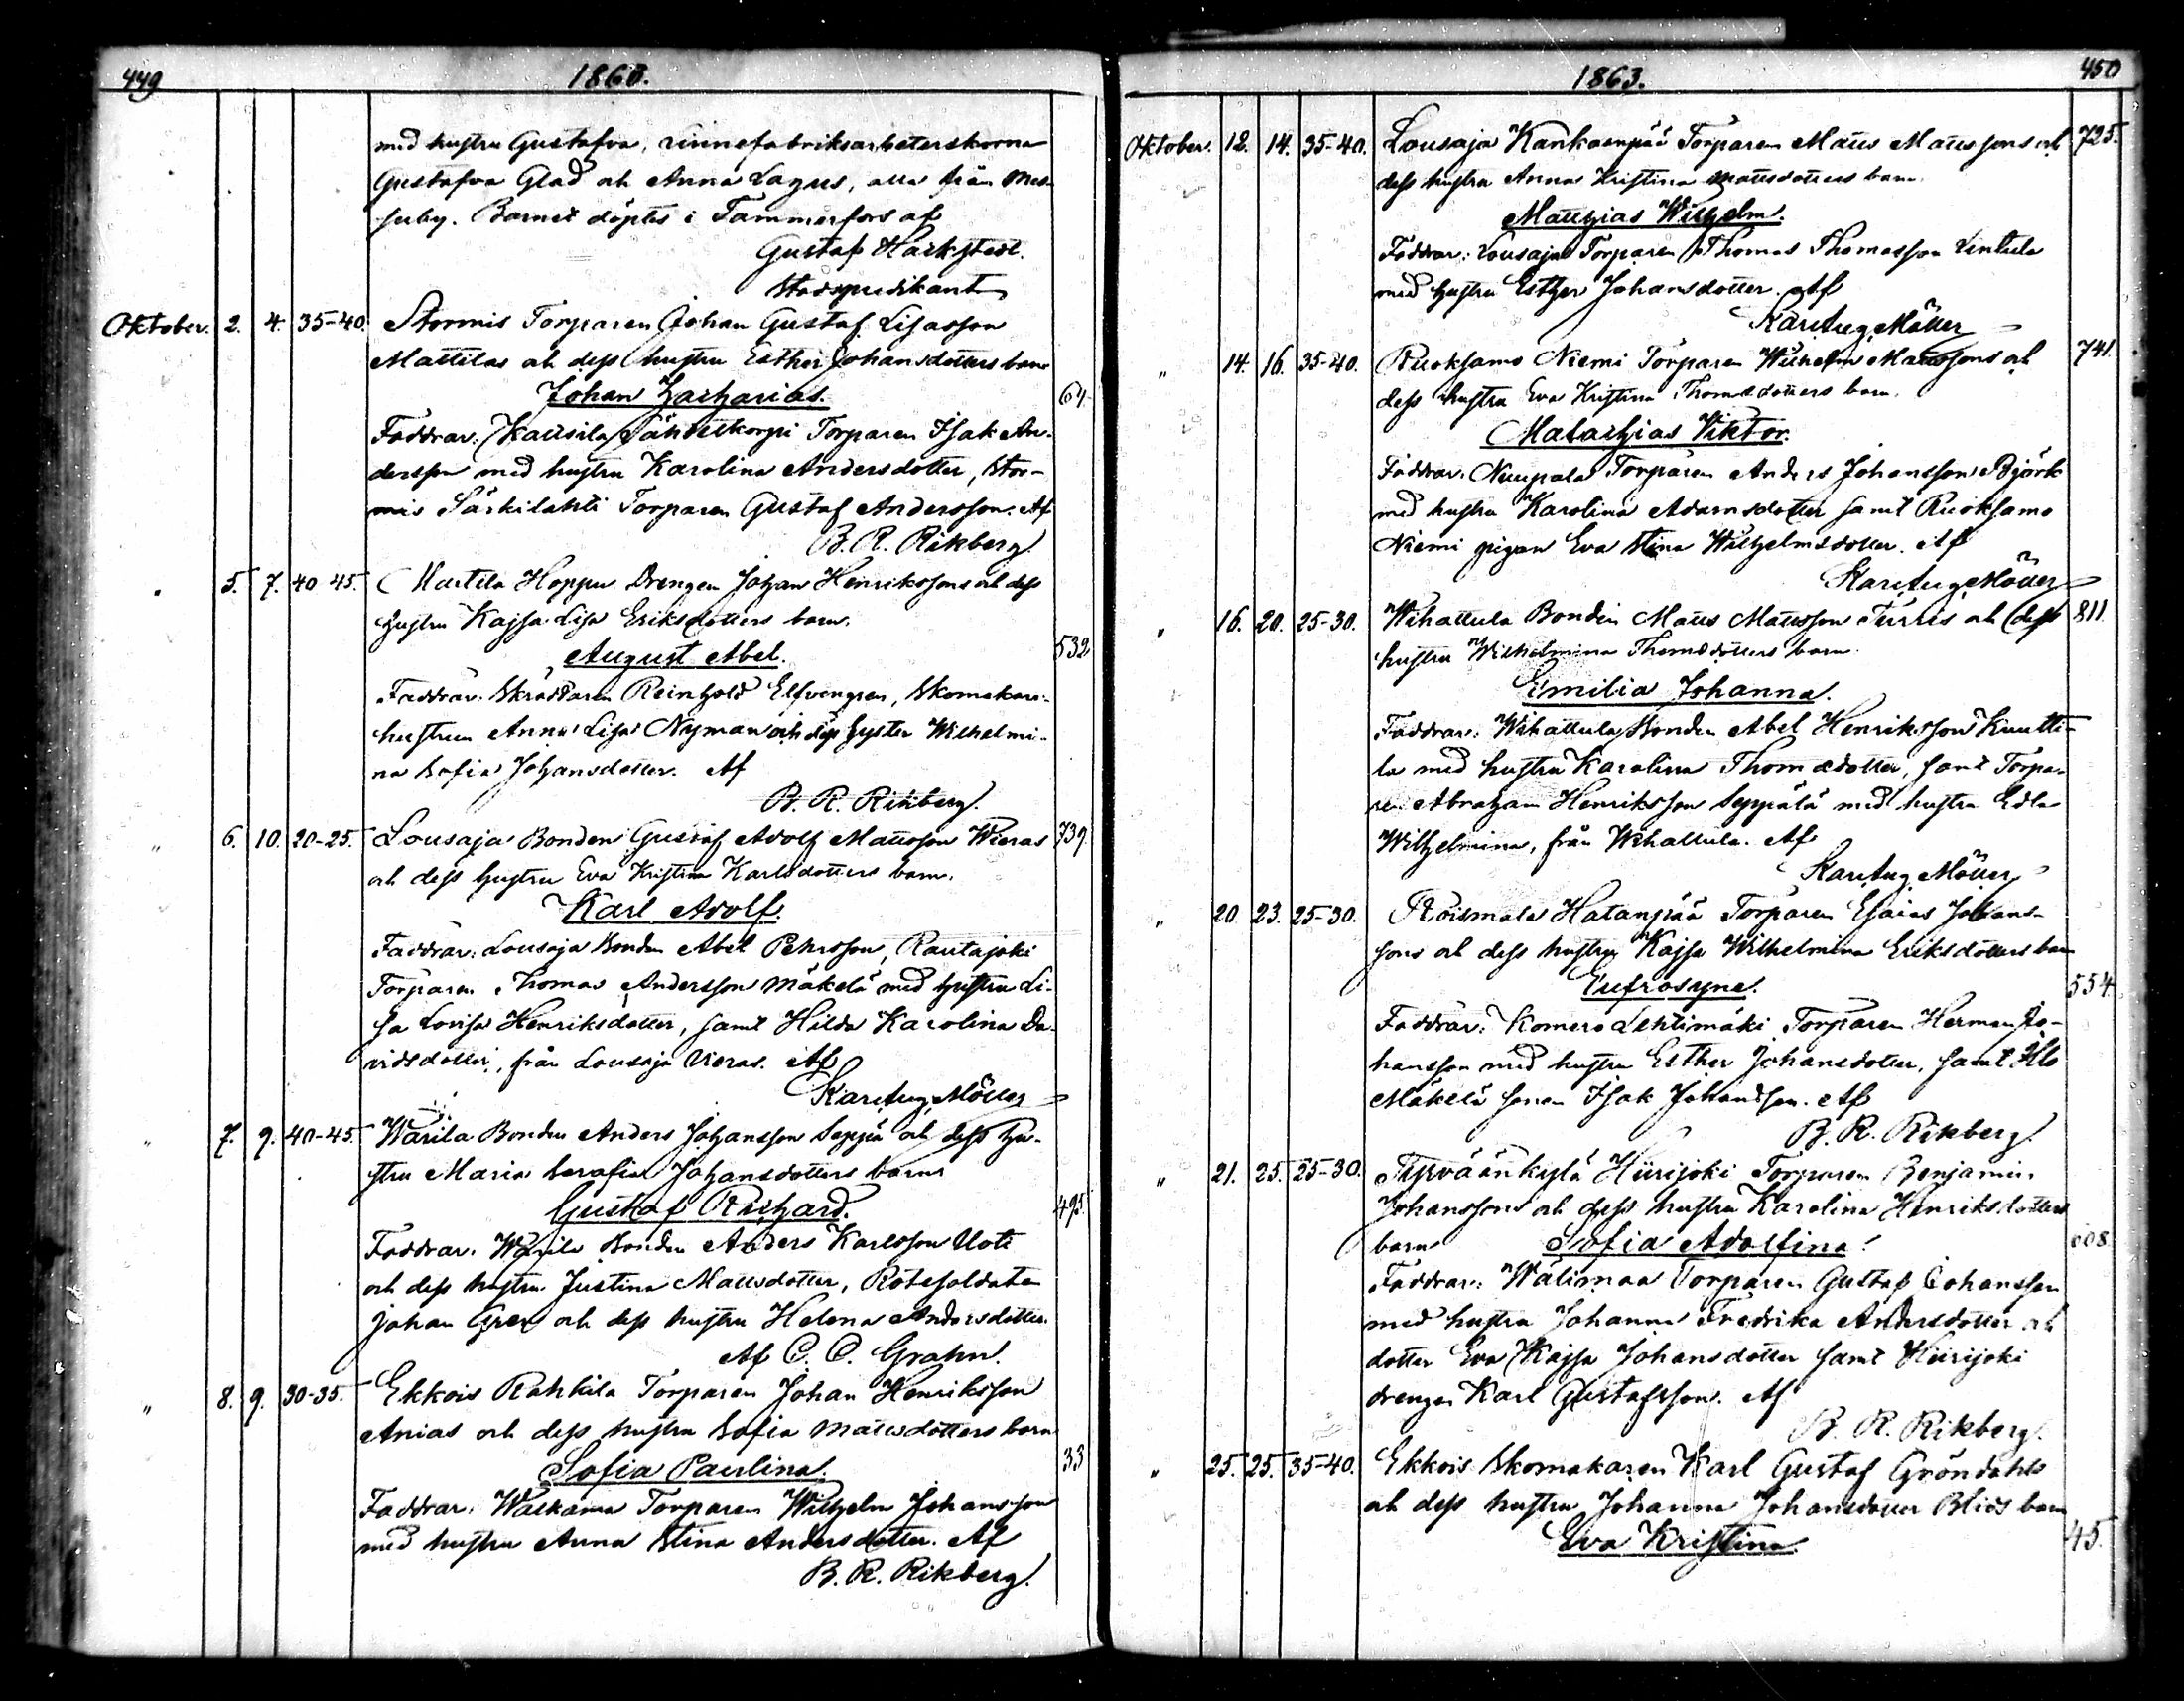 449
1863.
med hustru Gustafva, linnefabriksarbeterskorna
Gustafva Glad och Anna Lagus, alla från Mes-
suby. Barnet döptes i Tammerfors af
Gustaf
Stadspredikant
Oktober. 2. 4. 35-40. Stormis Torparen Johan Gustaf Lisasson
Mattilas och dess hustru Esther Johansdotters barn
Johan Zacharias. 64.
Faddrar: Kausila Torparen Isak An-
dersson med hustru Karolina Andersdotter, Stor-
mis Särkilahti Torparen Gustaf Andersson. Af
B. R. Rikberg.
" 5. 7. 40-45. Martila Hoppu Drengen Johan Henrikssons och dess
hustru Kajsa Lisa Eriksdotters barn.
August Abel. 532
Faddrar: Skräddaren Reinhold Elfvengren, Skomakare-
hustrun Anna Lisa Nyman och dess syster Wilhelmi-
na Sofia Johansdotter. Af
B. R. Rikberg.
" 6. 10. 20-25. Lousaja Bonden Gustaf Adolf Mattsson Wieras 739.
och dess hustru Eva Kristina Karlsdotters barn.
Karl Adolf.
Faddrar: Lousaja Bonden Abel Pehrsson, Rautajoki
Torparen Thomas Andersson Mäkelä med hustru Li-
sa Lovisa Henriksdotter, samt Hilda Karolina Da-
vidsdotter, från Lousaja Vieras. Af
Karl Aug. Möller
" 7. 9. 40-45. Warila Bonden Anders Johansson Seppä och dess hu-
stru Maria Serafia Johansdotters barn
Gustaf Richard. 495.
Faddrar: Warila Bonden Anders Karlsson Uoti
och dess hustru Justina Mattsdotter, Rotesoldaten
Johan Gren och dess hustru Helena Andersdotter.
Af C. C. Grahn.
" 8. 9. 30-35. Ekkois Rahkila Torparen Johan Henriksson
Anias och dess hustru Sofia Mattsdotters barn
Sofia Paulina. 33
Faddrar: Walkama Torparen Wilhelm Johansson
med hustru Anna Stina Andersdotter. Af
B. R. Rikberg.
1863.
450
Oktober. 12. 14. 35-40. Lousaja Kankaanpää Torparen Matts Mattssons och 725.
dess hustru Anna Kristina Mattsdotters barn.
Matthias Wilhelm.
Faddrar: Lousaja Torparen Thomas Thomasson Lintula
med hustru Esther Johansdotter. Af
Karl Aug. Möller
" 14. 16. 35-40. Ruoksamo Niemi Torparen Wilhelm Mattssons och 741.
dess hustru Eva Kristina Thomædotters barn.
Malachias Viktor.
Faddrar: Nuupala Torparen Anders Johansson Björk
med hustru Karolina Adamsdotter samt Ruoksamo
Niemi pigan Eva Stina Wilhelmsdotter. Af
Karl Aug. Möller
" 16. 20. 25-30. Wihattula Bonden Matts Mattsson Turris och dess 811.
hustru Wilhelmina Thomædotters barn.
Emilia Johanna.
Faddrar: Wihattula Bonden Abel Henriksson Knutti-
la med hustru Karolina Thomædotter, samt Torpa-
ren Abraham Henriksson Seppälä med hustru Edla
Wilhelmina, från Wihattula. Af
Karl Aug. Möller
" 20. 23. 25-30. Roismala Hatanpää Torparen Esaias Johans-
sons och dess hustru Kajsa Wilhelmina Eriksdotters barn
Eufrosyne. 554.
Faddrar: Komero Lehtimäki Torparen Herman Jo-
hansson med hustru Esther Johansdotter, samt Illo
Mäkelä sonen Isak Johansson. Af
B. R. Rikberg.
" 21. 25. 25-30. Tyrväänkylä Hiirijoki Torparen Benjamin
Johanssons och dess hustru Karolina Henriksdotters
barn Sofia Adolfina. 608
Faddrar: Wälimaa Torparen Gustaf Johansson
med hustru Johanna Fredrika Andersdotter och
dotter Eva Kajsa Johansdotter samt Hiirijoki
drengen Karl Gustafsson. Af
B. R. Rikberg.
" 25. 25. 35-40. Ekkois Skomakaren Karl Gustaf Gröndahls
och dess hustru Johanna Johansdotter Blids barn
Eva Kristina. 45.